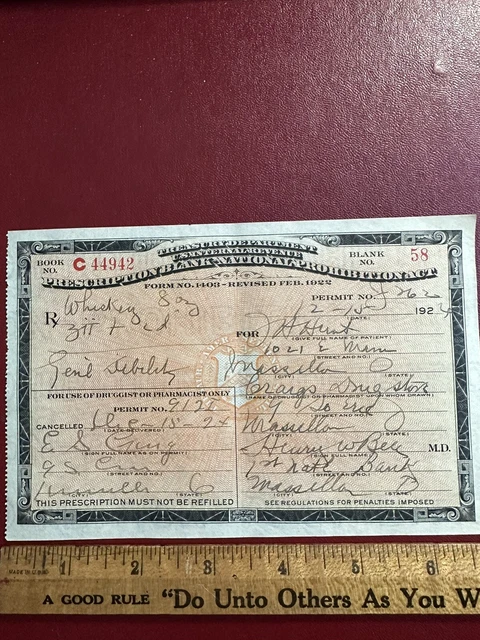 TREASURY DEPARTMENT
U.S. INTERNAL REVENUE
PRESCRIPTION BLANK NATIONAL PROHIBITION ACT
BOOK NO. C 44942
BLANK NO. 58
FORM NO. 1403 - REVISED FEB. 1922
PERMIT NO.
Rx Whiskey
12-15 1924
(DATE)
FOR J H Hunt
(GIVE FULL NAME OF PATIENT)
1021 E Main
(STREET AND NO.)
Genl Debility
Massillon O
(CITY) (STATE)
Craigs Drug store
(NAME OF DRUGGIST OR PHARMACIST UPON WHOM DRAWN)
FOR USE OF DRUGGIST OR PHARMACIST ONLY
PERMIT NO.
(STREET AND NO.)
CANCELLED Dec 15 - 24
(DATE DELIVERED)
Massillon O
(CITY) (STATE)
(SIGN FULL NAME AS ON PERMIT)
Henry W Bell M.D.
(SIGN FULL NAME)
(STREET AND NO.)
1st Natl Bank
(STREET AND NO.)
Massillon O
(CITY) (STATE)
(CITY) (STATE)
THIS PRESCRIPTION MUST NOT BE REFILLED
SEE REGULATIONS FOR PENALTIES IMPOSED
1 2 3 4 5 6
A GOOD RULE "Do Unto Others As You W